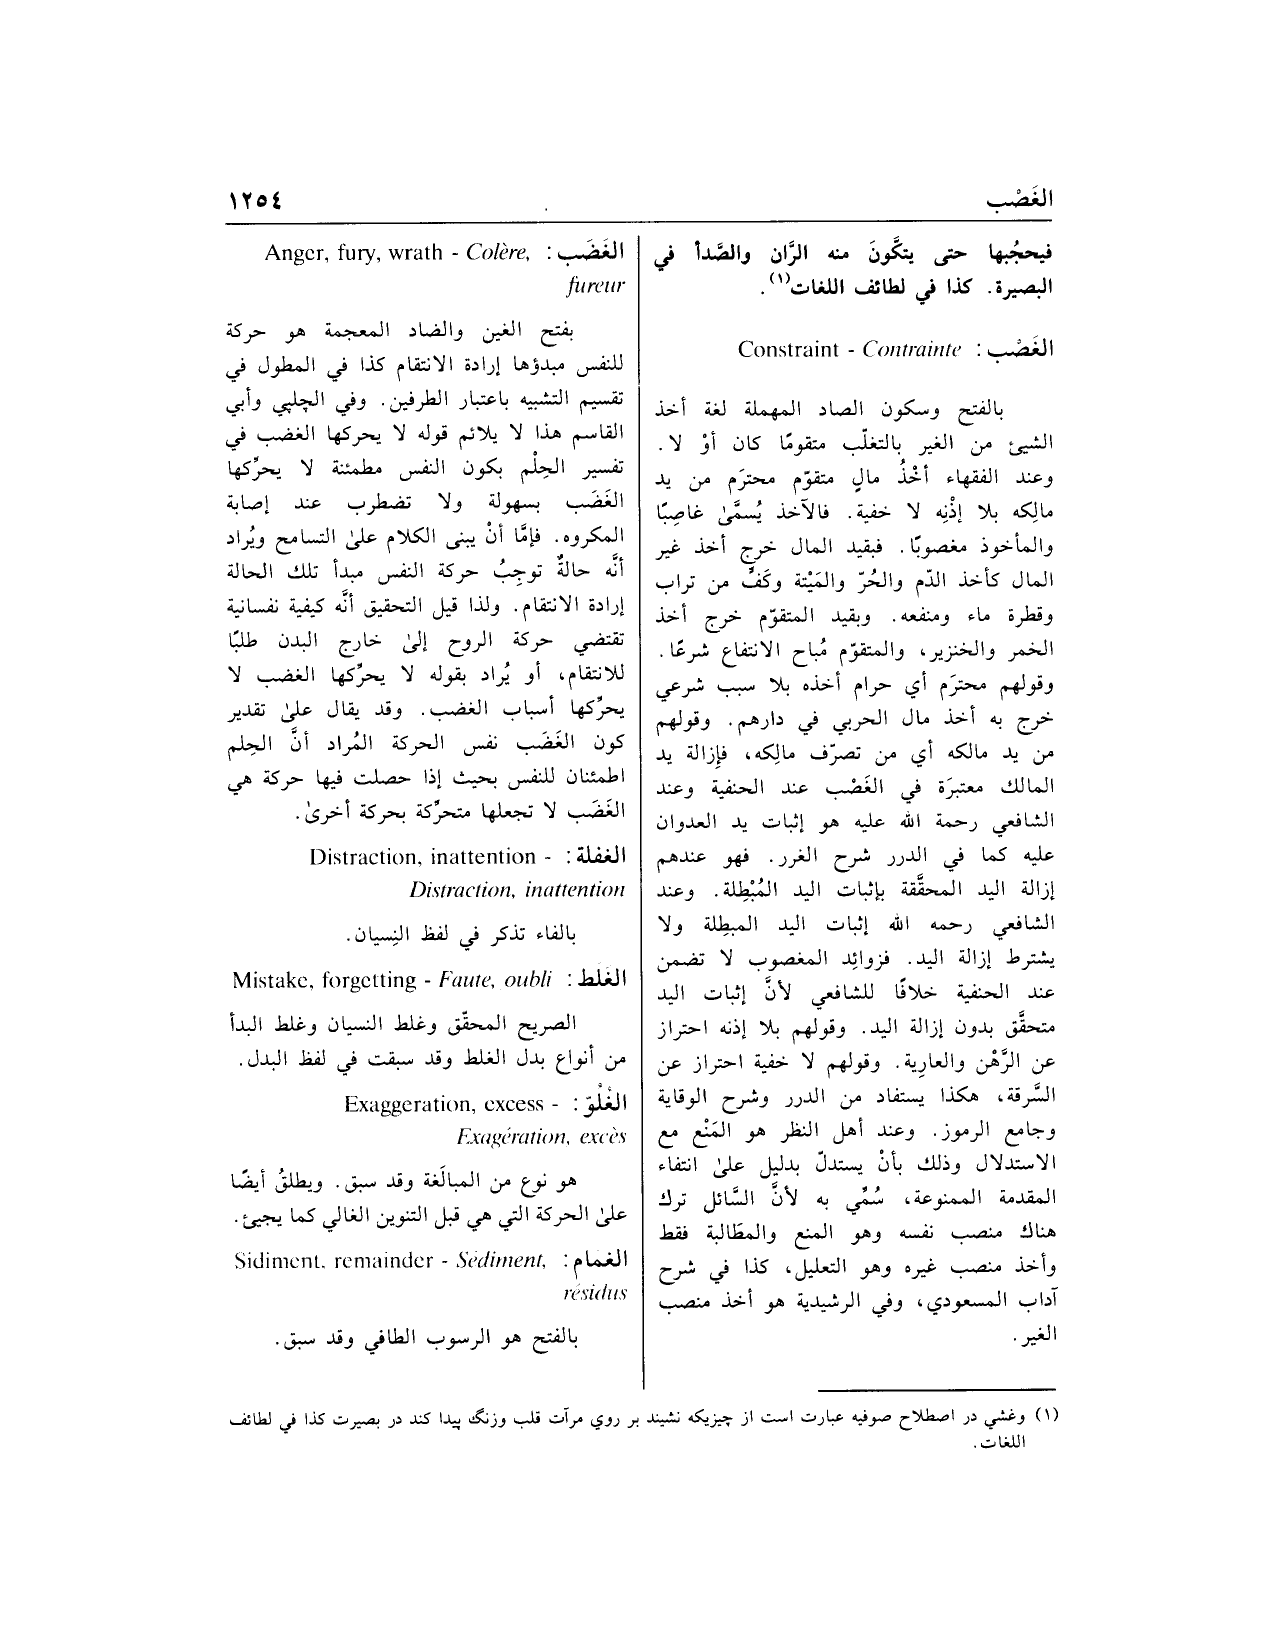 الغَصْب
١٢٥٤
فيحجُبها حتى يتكَّونَ منه الرَّان والصَّدأ في
البصيرة. كذا في لطائف اللغات(١).
الغَصْب: Constraint - Contrainte
بالفتح وسكون الصاد المهملة لغة أخذ
الشيئ من الغير بالتغلّب متقومًا كان أوْ لا.
وعند الفقهاء أخْذُ مالٍ متقوّم محترَم من يد
مالِكه بلا إذْنِه لا خفية. فالآخذ يُسمَّىٰ غاصِبًا
والمأخوذ مغصوبًا. فبقيد المال خرج أخذ غير
المال كأخذ الدّم والحُرّ والمَيْتة وكَفٍّ من تراب
وقطرة ماء ومنفعه. وبقيد المتقوّم خرج أخذ
الخمر والخنزير، والمتقوّم مُباح الانتفاع شرعًا.
وقولهم محترَم أي حرام أخذه بلا سبب شرعي
خرج به أخذ مال الحربي في دارهم. وقولهم
من يد مالكه أي من تصرّف مالِكه، فإزالة يد
المالك معتبرَة في الغَصْب عند الحنفية وعند
الشافعي رحمة الله عليه هو إثبات يد العدوان
عليه كما في الدرر شرح الغرر. فهو عندهم
إزالة اليد المحقَّقة بإثبات اليد المُبْطِلة. وعند
الشافعي رحمه الله إثبات اليد المبطِلة ولا
يشترط إزالة اليد. فزوائِد المغصوب لا تضمن
عند الحنفية خلافًا للشافعي لأنَّ إثبات اليد
متحقَّق بدون إزالة اليد. وقولهم بلا إذنه احتراز
عن الرَّهْن والعارِية. وقولهم لا خفية احتراز عن
السَّرقة، هكذا يستفاد من الدرر وشرح الوقاية
وجامع الرموز. وعند أهل النظر هو المَنْع مع
الاستدلال وذلك بأنْ يستدلّ بدليل علىٰ انتفاء
المقدمة الممنوعة، سُمِّي به لأنَّ السَّائل ترك
هناك منصب نفسه وهو المنع والمطَالبة فقط
وأخذ منصب غيره وهو التعليل، كذا في شرح
آداب المسعودي، وفي الرشيدية هو أخذ منصب
الغير.
الغَضَب: Anger, fury, wrath - Colère,
fureur
بفتح الغين والضاد المعجمة هو حركة
للنفس مبدؤها إرادة الانتقام كذا في المطول في
تقسيم التشبيه باعتبار الطرفين. وفي الچلپي وأبي
القاسم هذا لا يلائم قوله لا يحركها الغضب في
تفسير الحِلْم بكون النفس مطمئنة لا يحرِّكها
الغَضَب بسهولة ولا تضطرب عند إصابة
المكروه. فإمَّا أنْ يبنى الكلام علىٰ التسامح ويُراد
أنَّه حالةٌ توجِبُ حركة النفس مبدأ تلك الحالة
إرادة الانتقام. ولذا قيل التحقيق أنَّه كيفية نفسانية
تقتضي حركة الروح إلىٰ خارج البدن طلبًا
للانتقام، أو يُراد بقوله لا يحرِّكها الغضب لا
يحرِّكها أسباب الغضب. وقد يقال علىٰ تقدير
كون الغَضَب نفس الحركة المُراد أنَّ الحِلم
اطمئنان للنفس بحيث إذا حصلت فيها حركة هي
الغَضَب لا تجعلها متحرِّكة بحركة أخرىٰ.
الغفلة: Distraction, inattention -
Distraction, inattention
بالفاء تذكر في لفظ النِسيان.
الغَلط: Mistake, forgetting - Faute, oubli
الصريح المحقّق وغلط النسيان وغلط البدأ
من أنواع بدل الغلط وقد سبقت في لفظ البدل.
الغُلْوّ: Exaggeration, excess -
Exagération, excès
هو نوع من المبالَغة وقد سبق. ويطلقُ أيضًا
علىٰ الحركة التي هي قبل التنوين الغالي كما يجيئ.
الغمام: Sidiment, remainder - Sédiment,
résidus
بالفتح هو الرسوب الطافي وقد سبق.
(١) وغشي در اصطلاح صوفيه عبارت است از چيزيكه نشيند بر روي مرآت قلب وزنگ پيدا كند در بصيرت كذا في لطائف
اللغات.